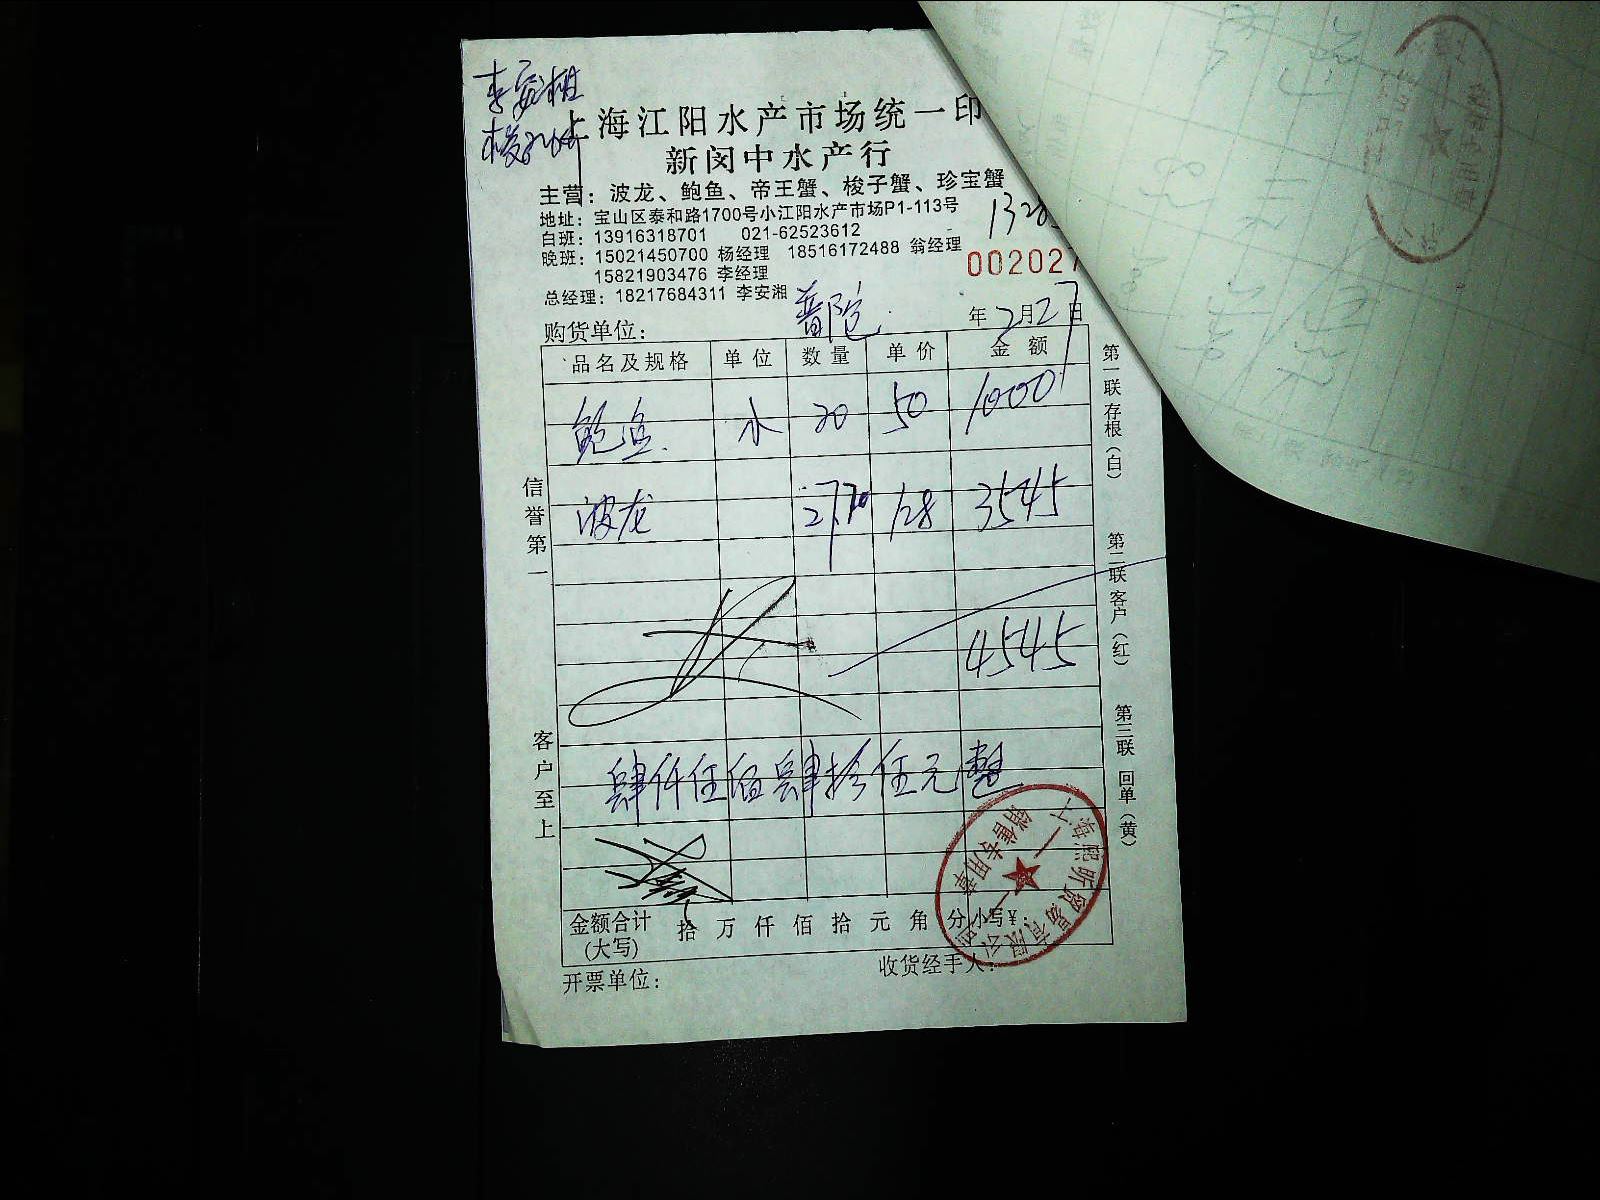 李安湘
上海江阳水产市场统一印
新闵中水产行
主营：波龙、鲍鱼、帝王蟹、梭子蟹、珍宝蟹
地址：宝山区泰和路1700号小江阳水产市场P1-113号
白班：13916318701 021-62523612
晚班：15021450700 杨经理 18516172488 翁经理
15821903476 李经理
总经理：18217684311 李安湘
002027
购货单位： 普陀 年2月27日
品名及规格 单位 数量 单价 金额
鲍鱼 水 20 50 1000
波龙 27.70 128 3545
4545
肆仟伍佰肆拾伍元整
金额合计(大写) 拾 万 仟 佰 拾 元 角 分 小写¥：
开票单位： 收货经手人：
信誉第一
客户至上
第一联 存根（白）
第二联 客户（红）
第三联 回单（黄）
上海熙昕贸易有限公司
销售专用章